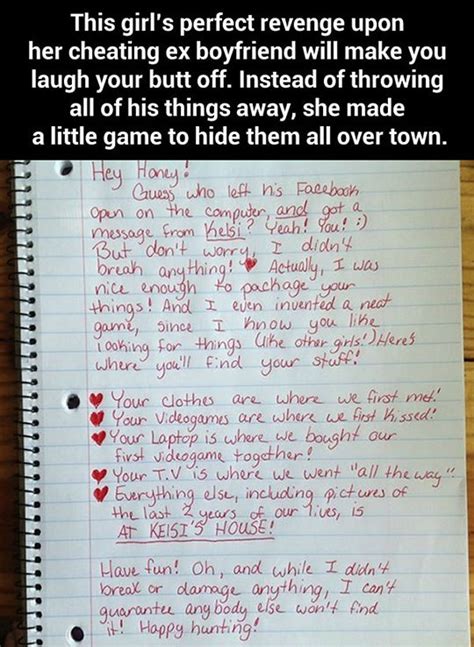 This girl's perfect revenge upon
her cheating ex boyfriend will make you
laugh your butt off. Instead of throwing
all of his things away, she made
a little game to hide them all over town.
Hey Honey!
Guess who left his Facebook
open on the computer, and got a
message from Kelsi? Yeah! You! :)
But don't worry, I didn't
break anything! ♥ Actually, I was
nice enough to package your
things! And I even invented a neat
game, since I know you like
looking for things (like other girls!) Here's
where you'll find your stuff!
♥ Your clothes are where we first met!
♥ Your Videogames are where we first kissed!
♥ Your Laptop is where we bought our
first videogame together!
♥ Your T.V is where we went "all the way"
♥ Everything else, including pictures of
the last 2 years of our lives, is
AT KELSI'S HOUSE!
Have fun! Oh, and while I didn't
break or damage anything, I can't
guarantee anybody else won't find
it! Happy hunting!